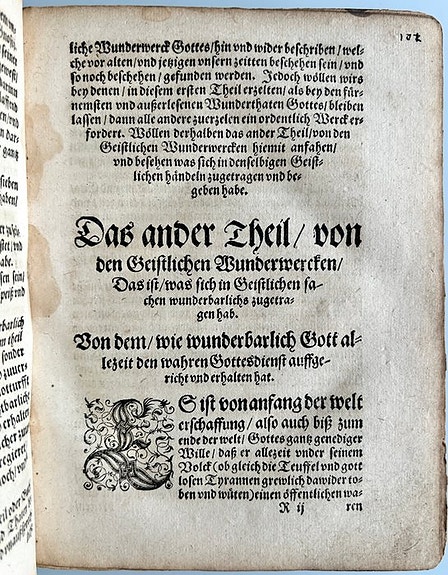 102
liche Wunderwerck Gottes/hin vnd wider beschriben/wel-
che vor alten/vnd jetzigen vnsern zeitten beschehen sein/vnd
so noch beschehen/gefunden werden. Jedoch wöllen wirs
bey denen/in disem ersten Theil erzelten/als bey den für-
nemsten vnd außerlesenen Wunderthaten Gottes/bleiben
lassen/dann alle andere zuerzelen ein ordentlich Werck er-
fordert. Wöllen derhalben das ander Theil/von den
Geistlichen Wunderwercken hiemit anfahen/
vnd besehen was sich in denselbigen Geist-
lichen händeln zugetragen vnd be-
geben habe.
Das ander Theil/ von
den Geistlichen Wunderwercken/
Das ist/was sich in Geistlichen sa-
chen wunderbarlichs zugetra-
gen hab.
Von dem/wie wunderbarlich Gott al-
lezeit den wahren Gottesdienst auffge-
richt vnd erhalten hat.
ES ist von anfang der welt
erschaffung/also auch biß zum
ende der welt/Gottes gantz genediger
Wille/daß er allezeit vnder seinem
Volck(ob gleich die Teuffel vnd gott
losen Tyrannen grewlich dawider to-
ben vnd wüten)einen öffentlichen wa-
R ij ren